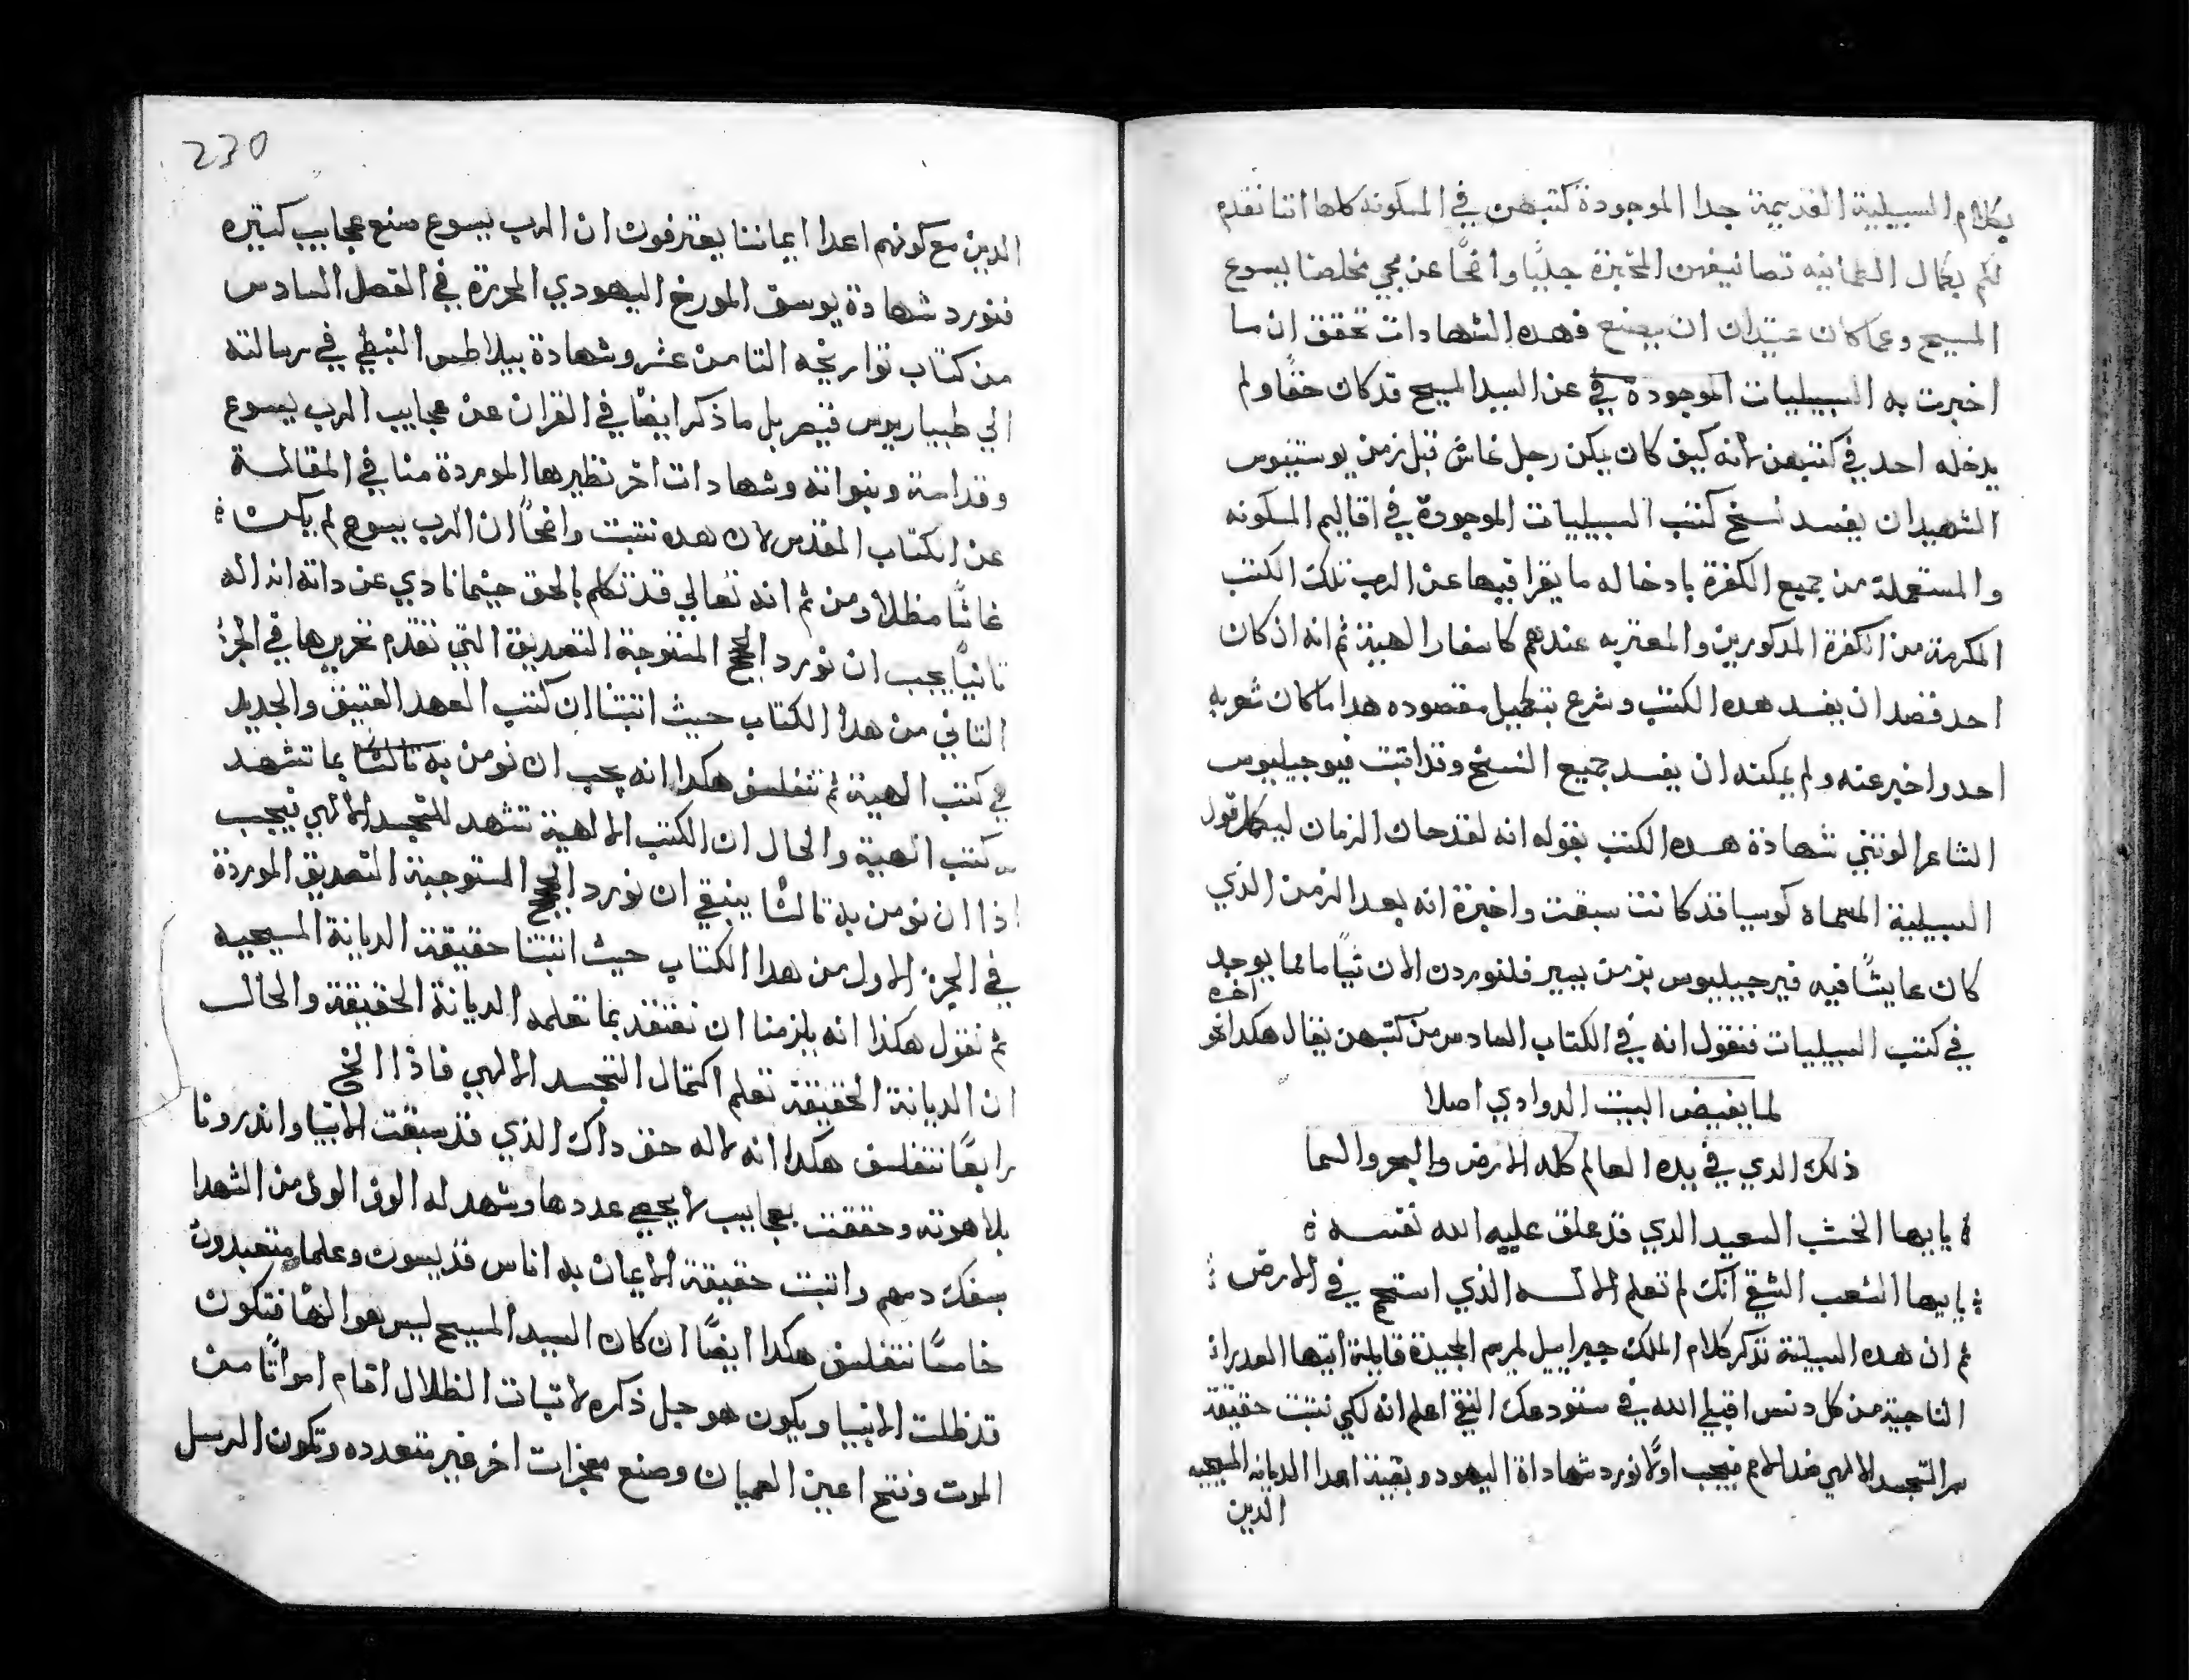 بكلام السبيلية القديمة جدا الموجودة كتبهن في المسكونه كلها اننا نقدم
لكم بكمال الطمانيه تصانيفهن المخبرة جليًا واضحًا عن مجي مخلصنا يسوع
المسيح وعما كان عتيدان ان يصنع فهده الشهادات تحقق ان ما
اخبرت به السبيليات الموجودة في عن السيد المسيح قد كان حقًا ولم
يدخله احد في كتبهن لانه كيف كان يمكن رجل غاش قبل زمن يوستينوس
الشهيد ان يفسد نسخ كتب السبيليات الموجودة في اقاليم المسكونه
والمستعملة من جميع الكفرة بادخاله ما يقرا فيها عن الرب تلك الكتب
المكرمة من الكفرة المدكورين والمعتبره عندهم كاسفار الهية ثم انه ان كان
احد قصد ان يفسد هده الكتب وشرع بتكميل مقصوده هدا ما كان شعر به
احد واخبر عنه ولم يمكنه ان يفسد جميع النسخ وقد اتبت فيوجيليوس
الشاعر الوتني شهادة هده الكتب بقوله انه لقد حان الزمان ليكمل قول
السبيلية المسماة كوسيا قد كانت سبقت واخبرة انه بعد الزمن الذي
كان عايشًا فيه فيرجيليوس بزمن يسير فلنوردن الان شيًا ما مما يوجد
في كتب السبيليات فنقول انه في الكتاب السادس من كتبهن يقال هكدا نحو
اخره
لما يفيض البيت الدوادي اصلا
ذلك الدي في يده العالم كله الارض والبحر والسما
يا ايها الخشب السعيد الدي قد علق عليه الله نفسه
يا ايها الشعب الشقي انك لم تعلم الاله الذي استحم في الارض
ثم ان هده السبيلية تذكر كلام الملاك جبراييل لمريم المجيدة قايلة ايتها العدرا
الناجية من كل دنس اقبلي الله في ستودعك النقي اعلم انه لكي نتبت حقيقة
سر التجسد الالهي ضد الامم فيجب اولًا نورد شهاداة اليهود وبقية اعدا الديانه المسيحيه
الدين
230
الدين مع كونهم اعدا ايماننا يعترفون ان الرب يسوع صنع عجايب كتيره
فنورد شهادة يوسف المورخ اليهودي المحررة في الفصل السادس
من كتاب تواريخه التامن عشر وشهادة بيلاطس النبطي في رسالته
الي طيباريوس قيصر بل ما ذكر ايضًا في القران عن عجايب الرب يسوع
وقداسته ونبواته وشهادات اخر نظيرها الموردة منا في المقالة
عن الكتاب المقدس لان هده تتبت واضحًا ان الرب يسوع لم يكن
غاشًا مظلا ومن ثم انه تعالي قد تكلم بالحق حينما نادي عن داته انه اله
تانيًا يجب ان نورد الحجج المستوجبة التصديق التي تقدم تحريرها في الجز
التاني من هدا الكتاب حيث اتبتنا ان كتب العهد العتيق والجديد
هي كتب الهية ثم نتفلسف هكدا انه يجب ان نومن به تالتًا بما تشهد
كتب الهية والحال ان الكتب الالهية تشهد للتجسد الالهي فيجب
اذا ان نومن به تالتًا ينبغي ان نورد الحجج المستوجبة التصديق الموردة
في الجز الاول من هدا الكتاب حيث اتبتنا حقيقة الديانة المسيحيه
ثم نقول هكذا انه يلزمنا ان نعتقد بما تعلمه الديانة الحقيقة والحال
ان الديانة الحقيقة تعلم اكتمال التجسد الالهي فاذًا الخ
رابعًا نتفلسف هكدا انه لاله حق داك الذي قد سبقت الانبيا وانذرونا
بلاهوته وحققت بعجايب لا يحصي عددها وشهد له الوف الوف من الشهدا
بسفك دمهم واتبت حقيقة الايمان به اناس قديسون وعلما متعبدون
خامسًا نتفلسف هكدا ايضًا ان كان السيد المسيح ليس هو الهًا فتكون
قد ظلت الانبيا ويكون هو جل ذكره لاتبات الظلال اقام امواتًا من
الموت وفتح اعين العميان وصنع معجزات اخر غير متعدده وتكون الرسل